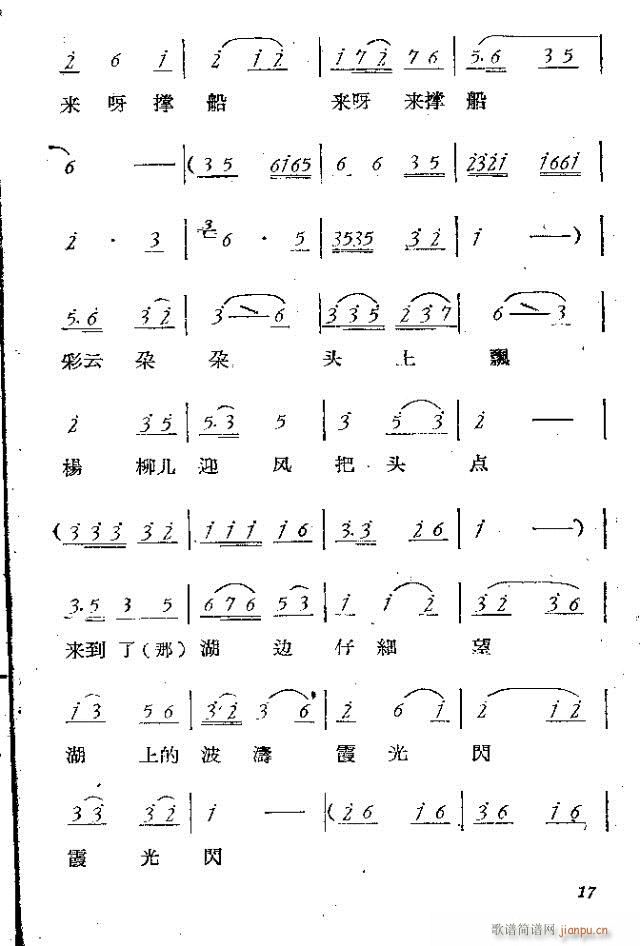 2 6 1 | 2 1 2 | 1 7 2 7 6 | 5. 6 3 5 |
来 呀 撑 船 来 呀 来 撑 船
6 — | (3 5 6165 | 6 6 3 5 | 2321 1661 |
2 · 3 | 3 6 · 5 | 3535 3 2 | 1 — ) |
5. 6 3 2 | 3 6 | 3 3 5 2 3 7 | 6 3 |
彩 云 朵 朵 头 上 飘
2 3 5 | 5. 3 5 | 3 5 3 | 2 — |
楊 柳 儿 迎 风 把 头 点
(3 3 3 3 2 | 1 1 1 1 6 | 3. 3 2 6 | 1 — ) |
3. 5 3 5 | 6 7 6 5 3 | 1 1 2 | 3 2 3 6 |
来 到 了 (那) 湖 边 仔 細 望
1 3 5 6 | 3· 2 3 6 | 2 6 1 | 2 1 2 |
湖 上 的 波 濤 霞 光 閃
3 3 3 2 | 1 — | (2 6 1 6 | 3 6 1 6 |
霞 光 閃
17
歌谱简谱网 jianpu.cn